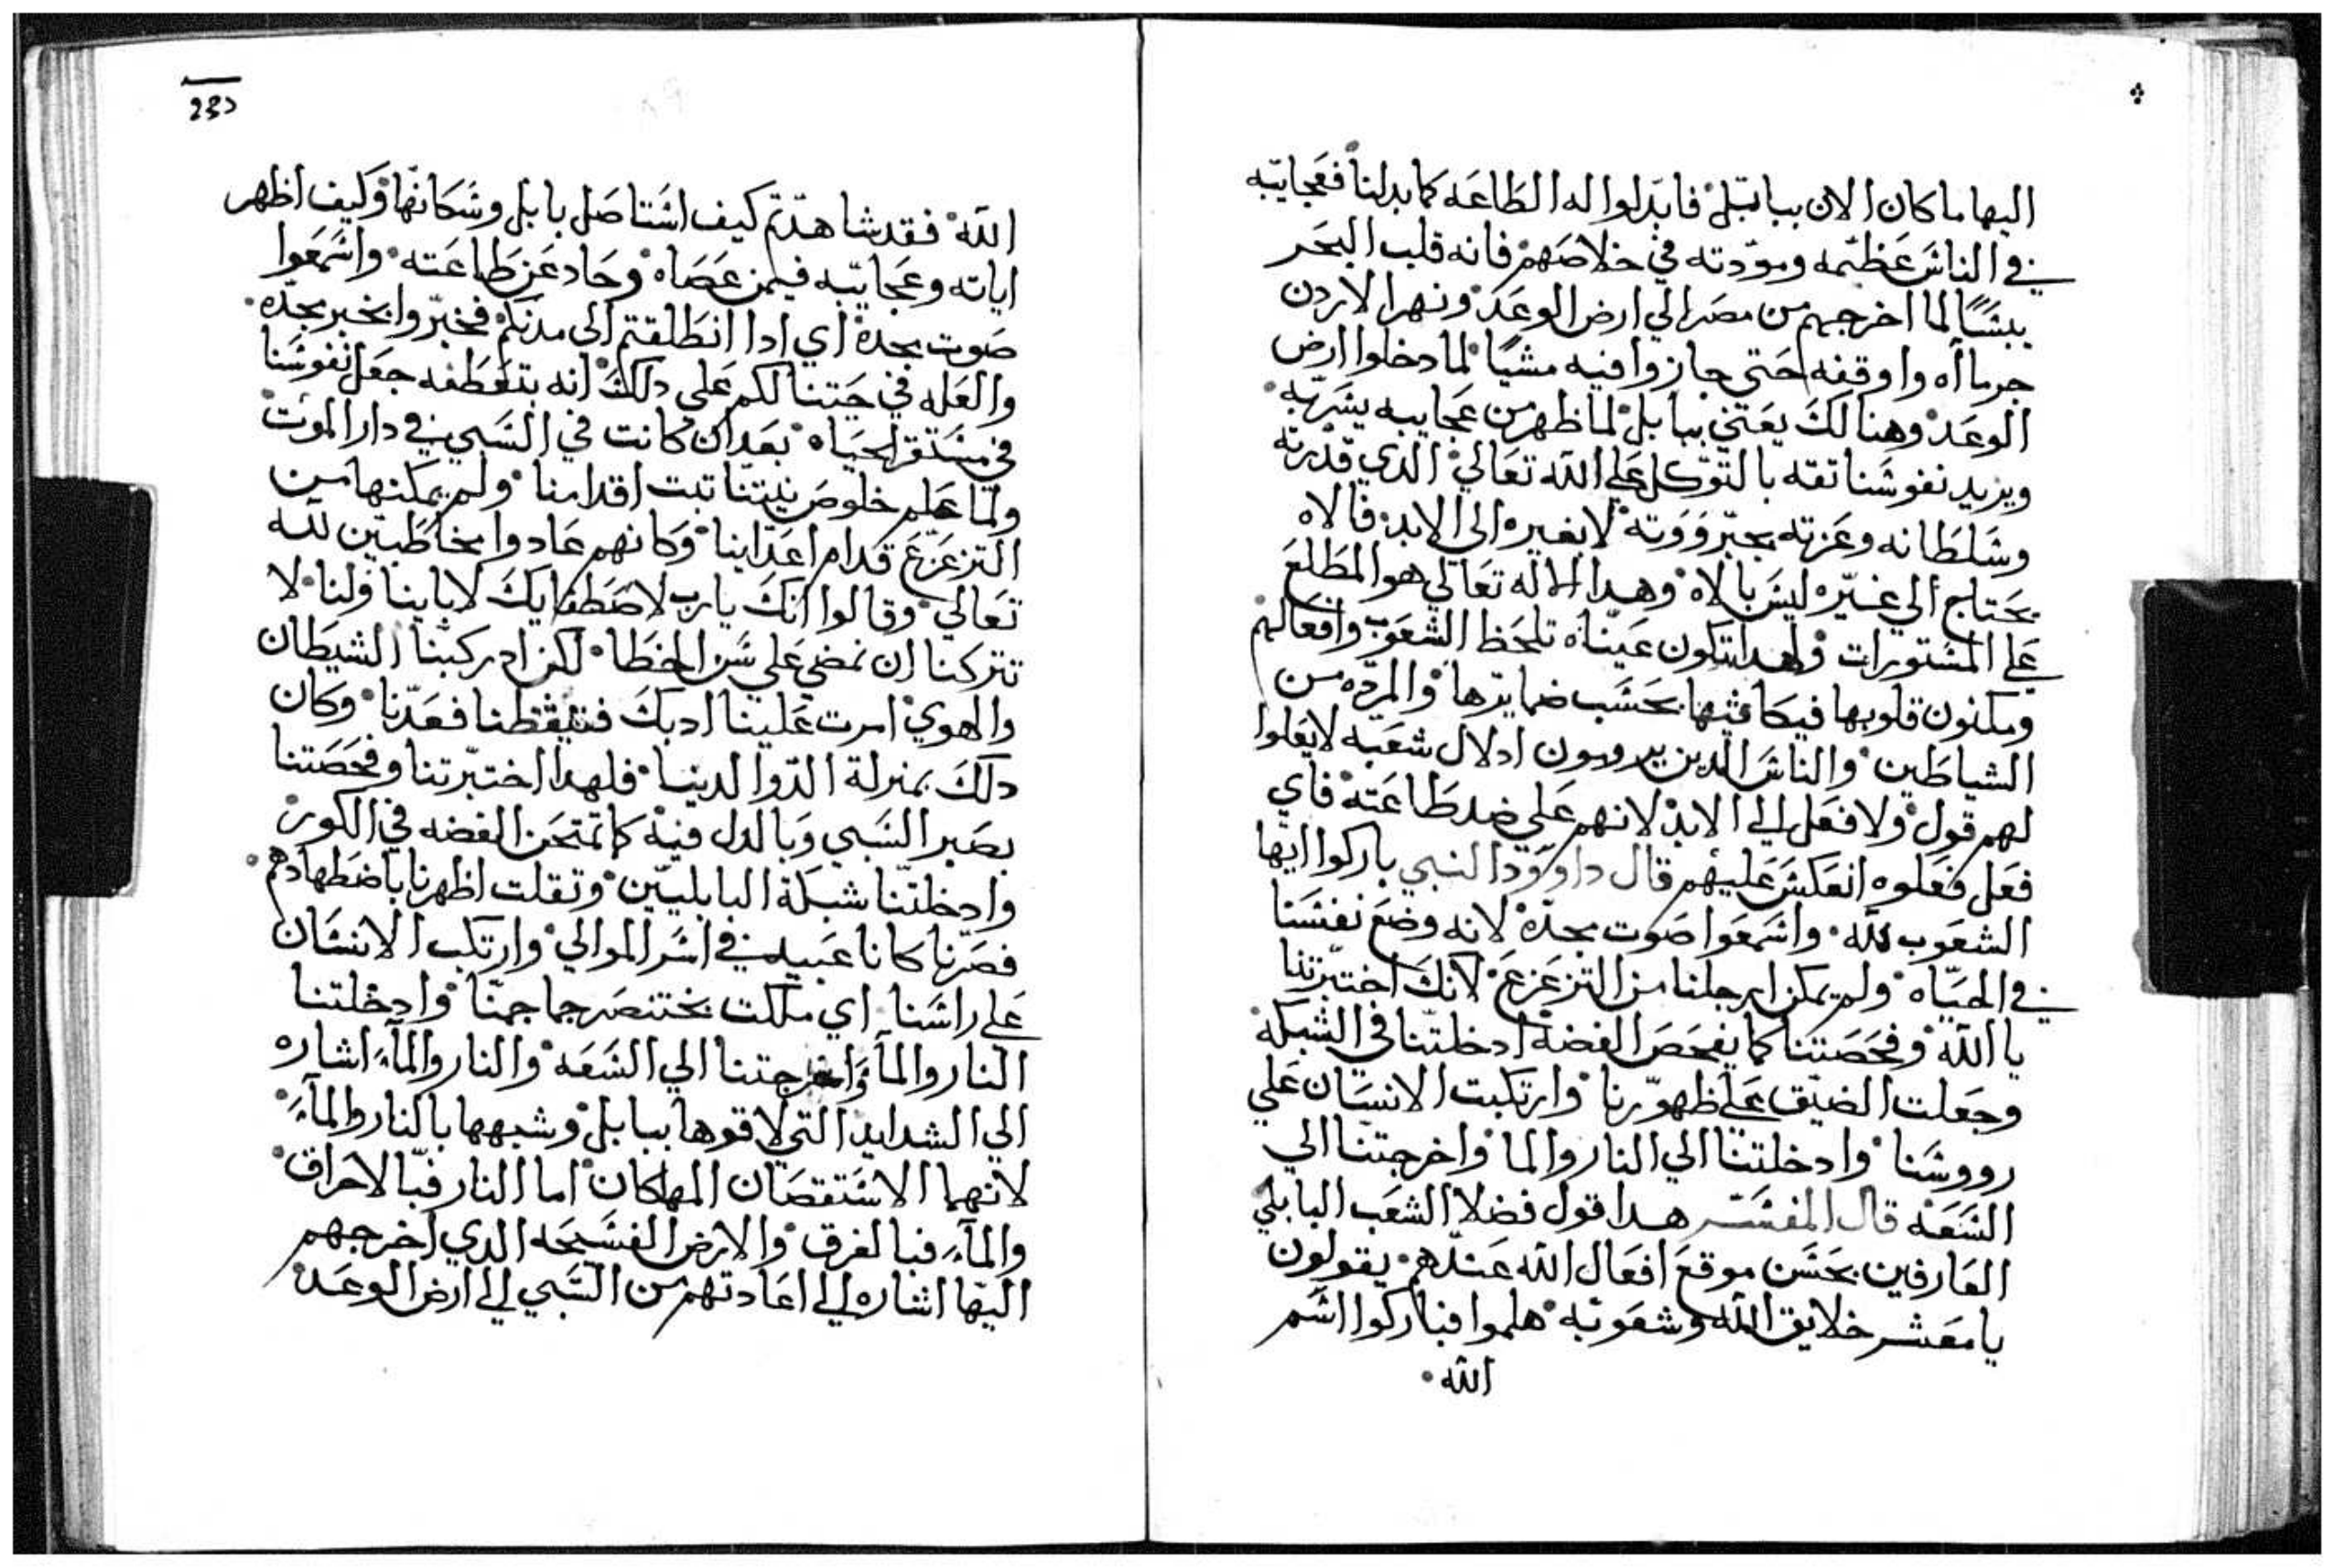 اليها ما كان الان ببابل فابدلوا له الطاعه كما بدلنا فعجايبه
في الناس عظيمه ومودته في خلاصهم فانه قلب البحر
يبسًا لما اخرجهم من مصر الي ارض الوعد ونهر الاردن
جر ماآه واوقفه حتى جازوا فيه مشيًا لما دخلوا ارض
الوعد وهنالك يعتني ببابل لما ظهر من عجايبه بشرته
ويزيد نفوسنا تقه بالتوكل علي الله تعالي الدي قدرته
وسلطانه وعزته بجبروته لا بغيره الى الابد فالاه
يحتاج الي غيره ليس بالاه وهدا الاله تعالي هو المطلع
علي المستورات ولهدا تكون عيناه تلحظ الشعوب وافعالهم
ومكنون قلوبها فيكافيها بحسب ضمايرها والمرده من
الشياطين والناس الدين يرومون ادلال شعبه لا يعلوا
لهم قول ولا فعل الي الابد لانهم علي ضد طاعته فاي
فعل فعلوه انعكس عليهم قال داوود النبي باركوا ايها
الشعوب لله واسمعوا صوت مجده لانه وضع نفسنا
في الحياه ولم يمكن ارجلنا من التزعزع لانك اختبرتنا
يا الله وفحصتنا كما يفحص الفضه ادخلتنا في الشبكه
وجعلت الضيق علي ظهورنا وارتكبت الانسان علي
رووسنا وادخلتنا الي النار والما واخرجتنا الي
السعه قال المفسر هدا قول فضلا الشعب البابلي
العارفين بحسن موقع افعال الله عندهم يقولون
يا معشر خلايق الله وشعوبه هلموا فباركوا اسم
الله
233
الله فقد شاهدتم كيف استاصل بابل وسكانها وكيف اظهر
اياته وعجايبه فيمن عصاه وحاد عن طاعته واسمعوا
صوت مجده اي ادا انطلقتم الى مدنكم فخبروا بخبر مجده
والعله في حتنا لكم علي دلك انه بتعطفه جعل نفوسنا
في مستقر الحياه بعد ان كانت في السبي في دار الموت
ولما علم خلوص نيتنا تبت اقدامنا ولم يمكنها من
التزعزع قدام اعداينا وكانهم عادوا مخاطبين لله
تعالي وقالوا انك يارب لاصطفايك لاباينا ولنا لا
تتركنا ان نمضي علي سنن الخطا لكن اد ركبنا الشيطان
والهوي امرت علينا ادبك فتيقظنا فعدنا وكان
دلك بمنزلة الدوا لدينا فلهدا اختبرتنا وفحصتنا
بصبر السبي وبالدل فيه كما تمتحن الفضه في الكور
وادخلتنا شبكة البابليين وتقلت اظهرنا باضطهادهم
فصرنا كانا عبيد في اسر الموالي وارتكب الانسان
علي راسنا اي ملكت بختنصر جماجمنا وادخلتنا
النار والمآ واخرجتنا الي السعه والنار والمآء اشاره
الي الشدايد التي لاقوها ببابل وشبهها بالنار والمآء
لانهما الاستقصان المهلكان اما النار فبالاحراق
والمآء فبالغرق والارض الفسيحه الدي اخرجهم
اليها اشاره الي اعادتهم من السبي الي ارض الوعد